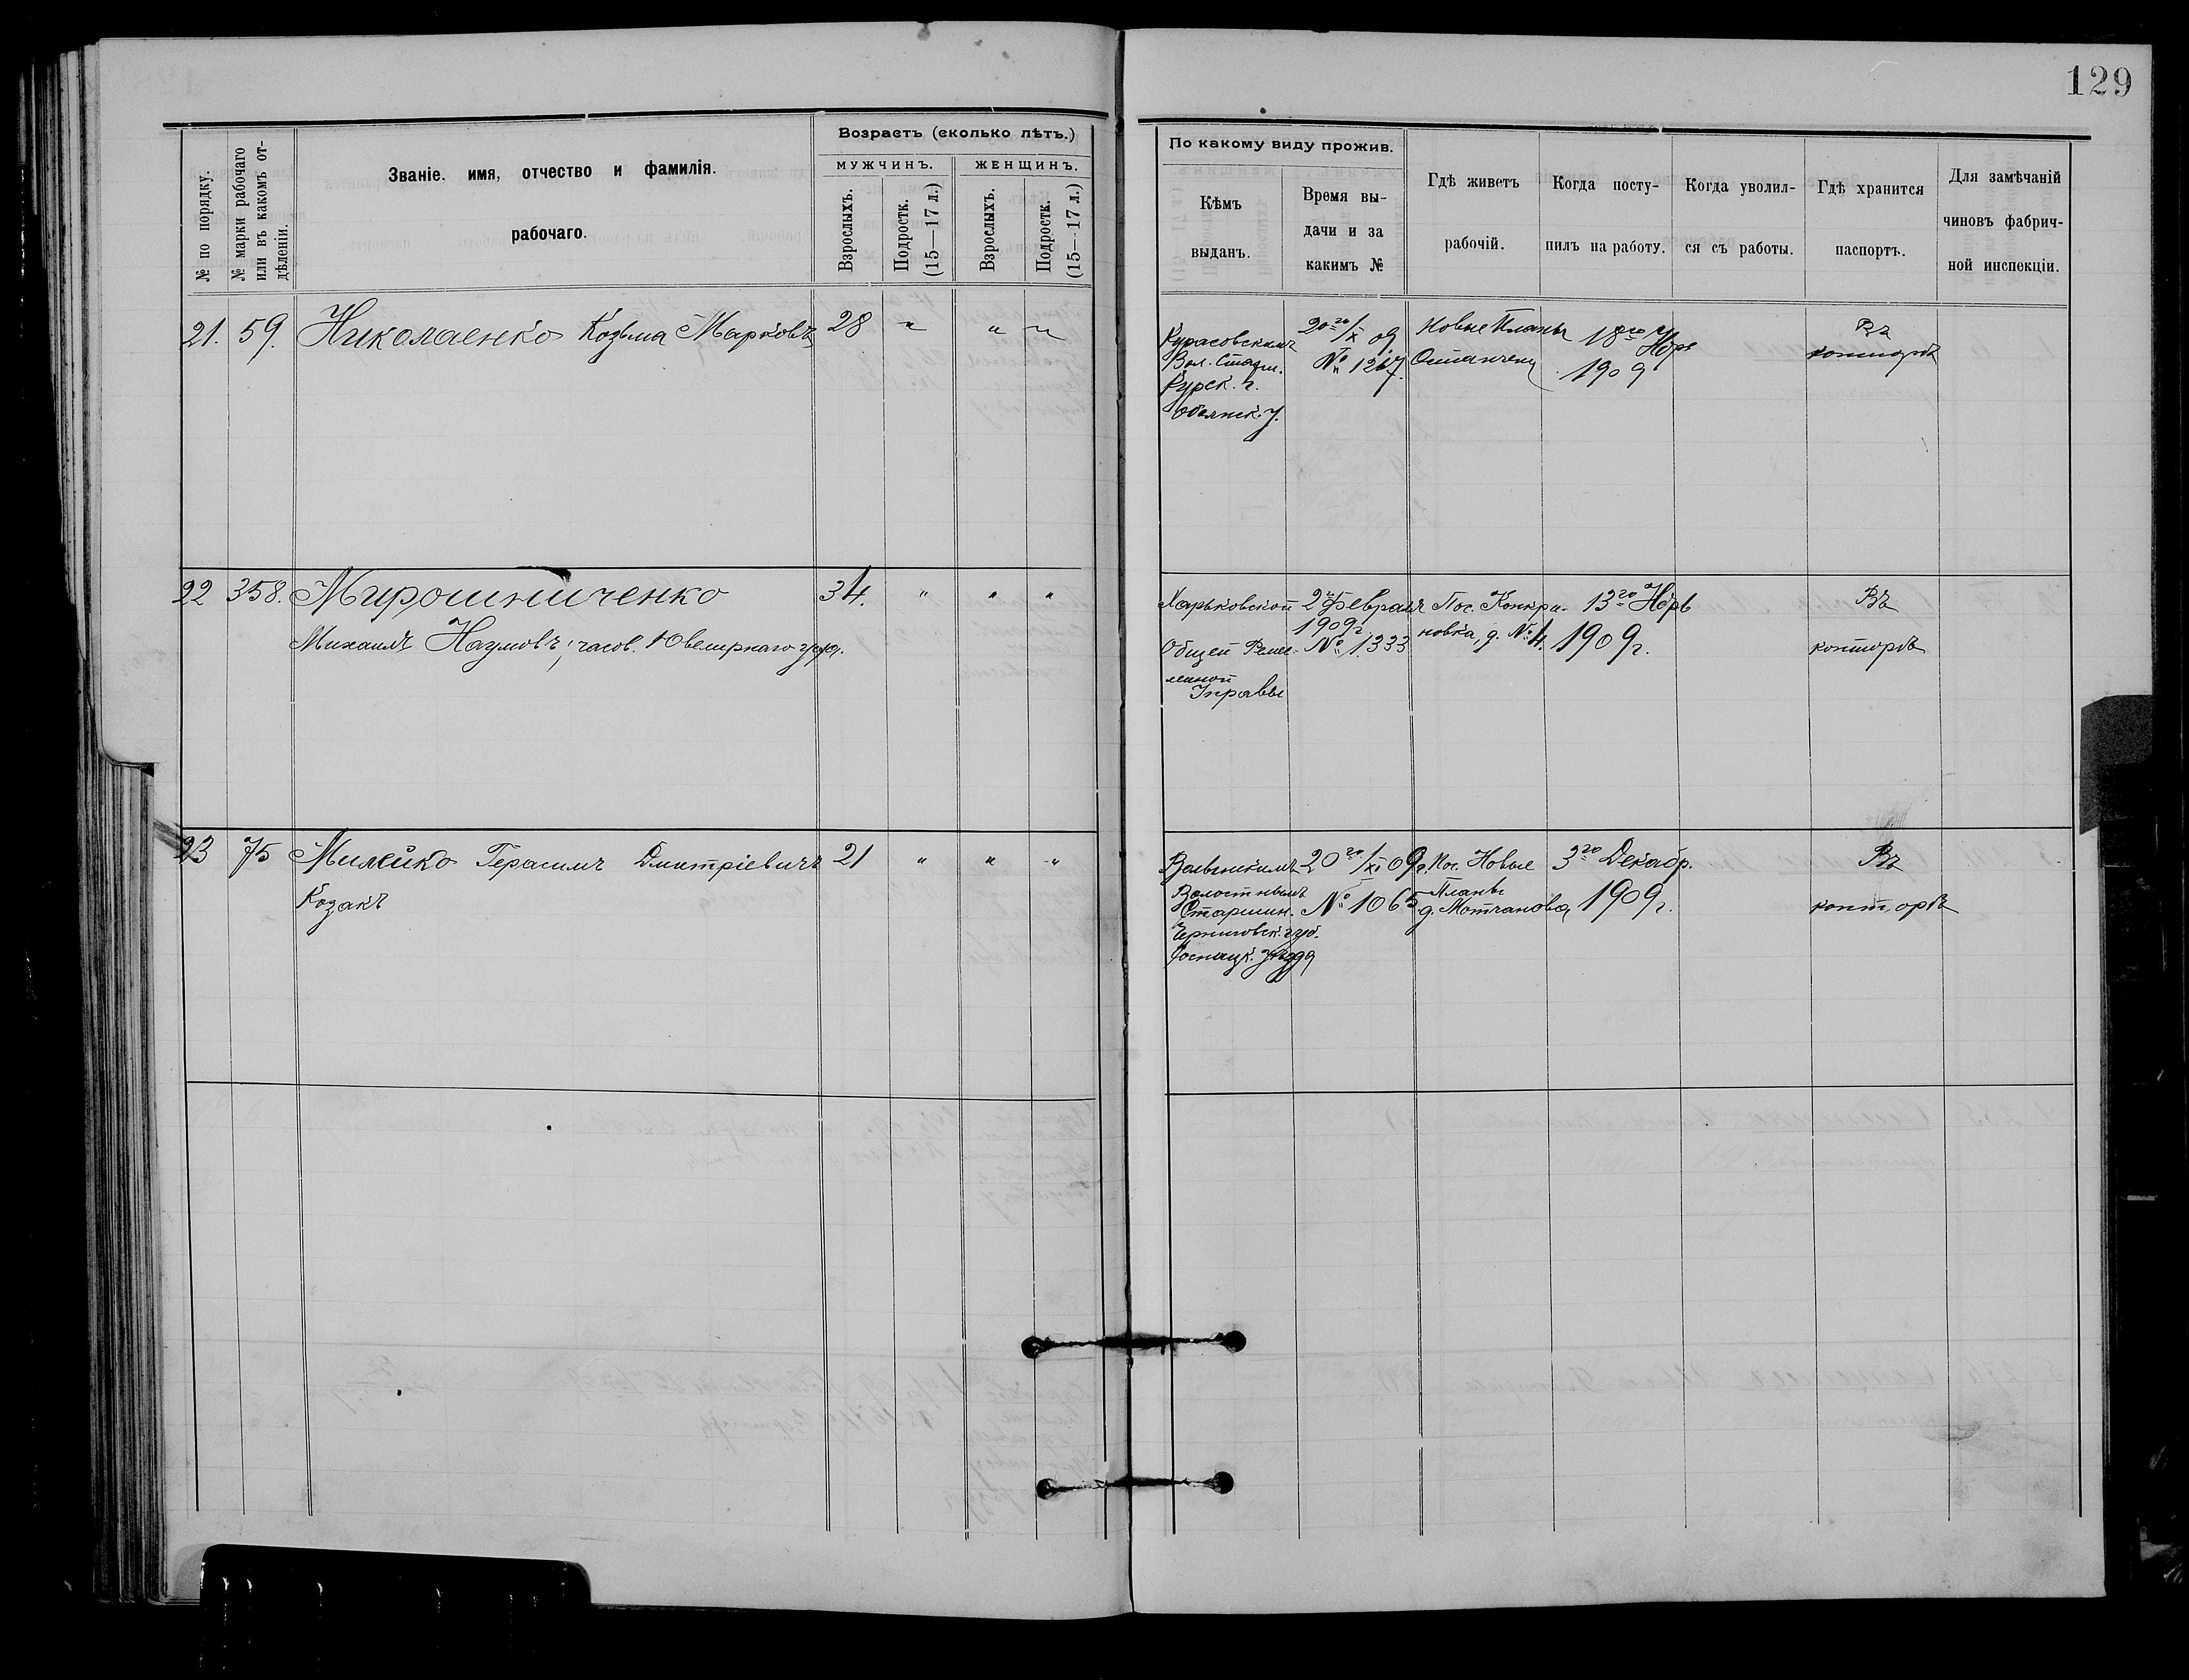 129
№ по порядку.
№ марки рабочаго
или въ какомъ от-
дѣленіи.
Званіе. имя, отчество и фамилія.
рабочаго.
Возрастъ (сколько лѣтъ.)
МУЖЧИНЪ.
ЖЕНЩИНЪ.
Взрослыхъ.
Подростк.
(15—17 л.)
Взрослыхъ.
Подростк.
(15—17 л.)
По какому виду прожив.
Кѣмъ
выданъ.
Время вы-
дачи и за
какимъ №
Гдѣ живетъ
рабочій.
Когда посту-
пилъ на работу.
Когда уволил-
ся съ работы.
Гдѣ хранится
паспортъ.
Для замѣчаній
чиновъ фабрич-
ной инспекціи.
21. 59. Николаенко Козьма Марковъ 28 " " "
Курасовскимъ
Вол. Старш.
Курск. г.
Обоянск. у.
20го/X 09
№ 1267.
Новые Планы
18го Нбря
1909
Въ
конторѣ
22 358. Мирошниченко 34. " " "
Михаилъ Наумовъ, часов. Ювелирнаго цеха.
Харьковской
Общей Ремес-
ленной
Управы
2го Февраля
1909г.
№ 1333
Пос. Кокри-
новка, д. № 4.
13го Нбрь
1909г.
Въ
конторѣ
23 75 Милейко Герасимъ Дмитріевичъ 21 " " "
Козакъ
Волостнымъ
Старшин.
Черниговск. губ.
уѣзда
20го/XI 09г.
№ 1065
Пос. Новые
Планы
д. Мотчанова
3го Декабр.
1909г.
Въ
конторѣ